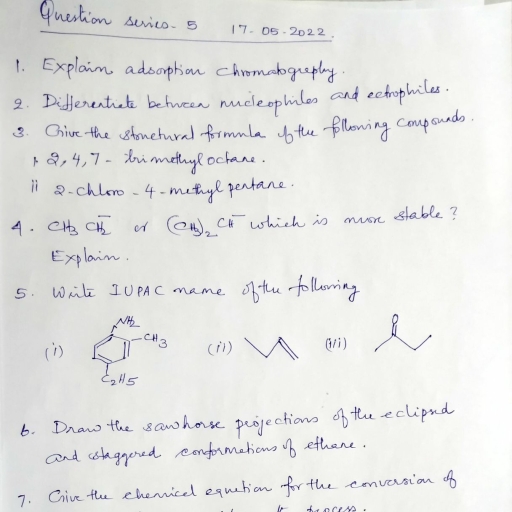 Question series - 5 17-05-2022.
1. Explain adsorption chromatography.
2. Differentiate between nucleophiles and ectrophiles.
3. Give the structural formula of the following compounds.
i 2,4,7 - trimethyloctane.
ii 2-chloro - 4 - methyl pentane.
4. CH3 CH2- or (CH3)2 CH- which is more stable?
Explain.
5. Write IUPAC name of the following
NH2
(i) CH3 (ii) (iii)
C2H5
6. Draw the sawhorse projections of the eclipsed
and staggered conformations of ethane.
7. Give the chemical equation for the conversion of
process.